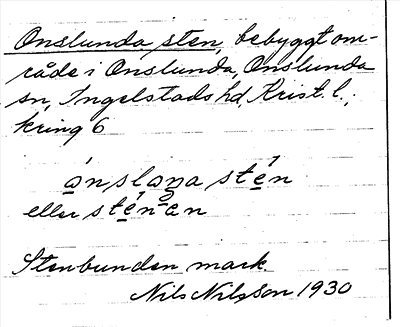 Onslunda sten, bebyggt om-
råde i Onslunda, Onslunda
sn, Ingelstads hd, Krist. l.;
kring 6
ånslåna stén
eller sténån
Stenbunden mark.
Nils Nilsson 1930